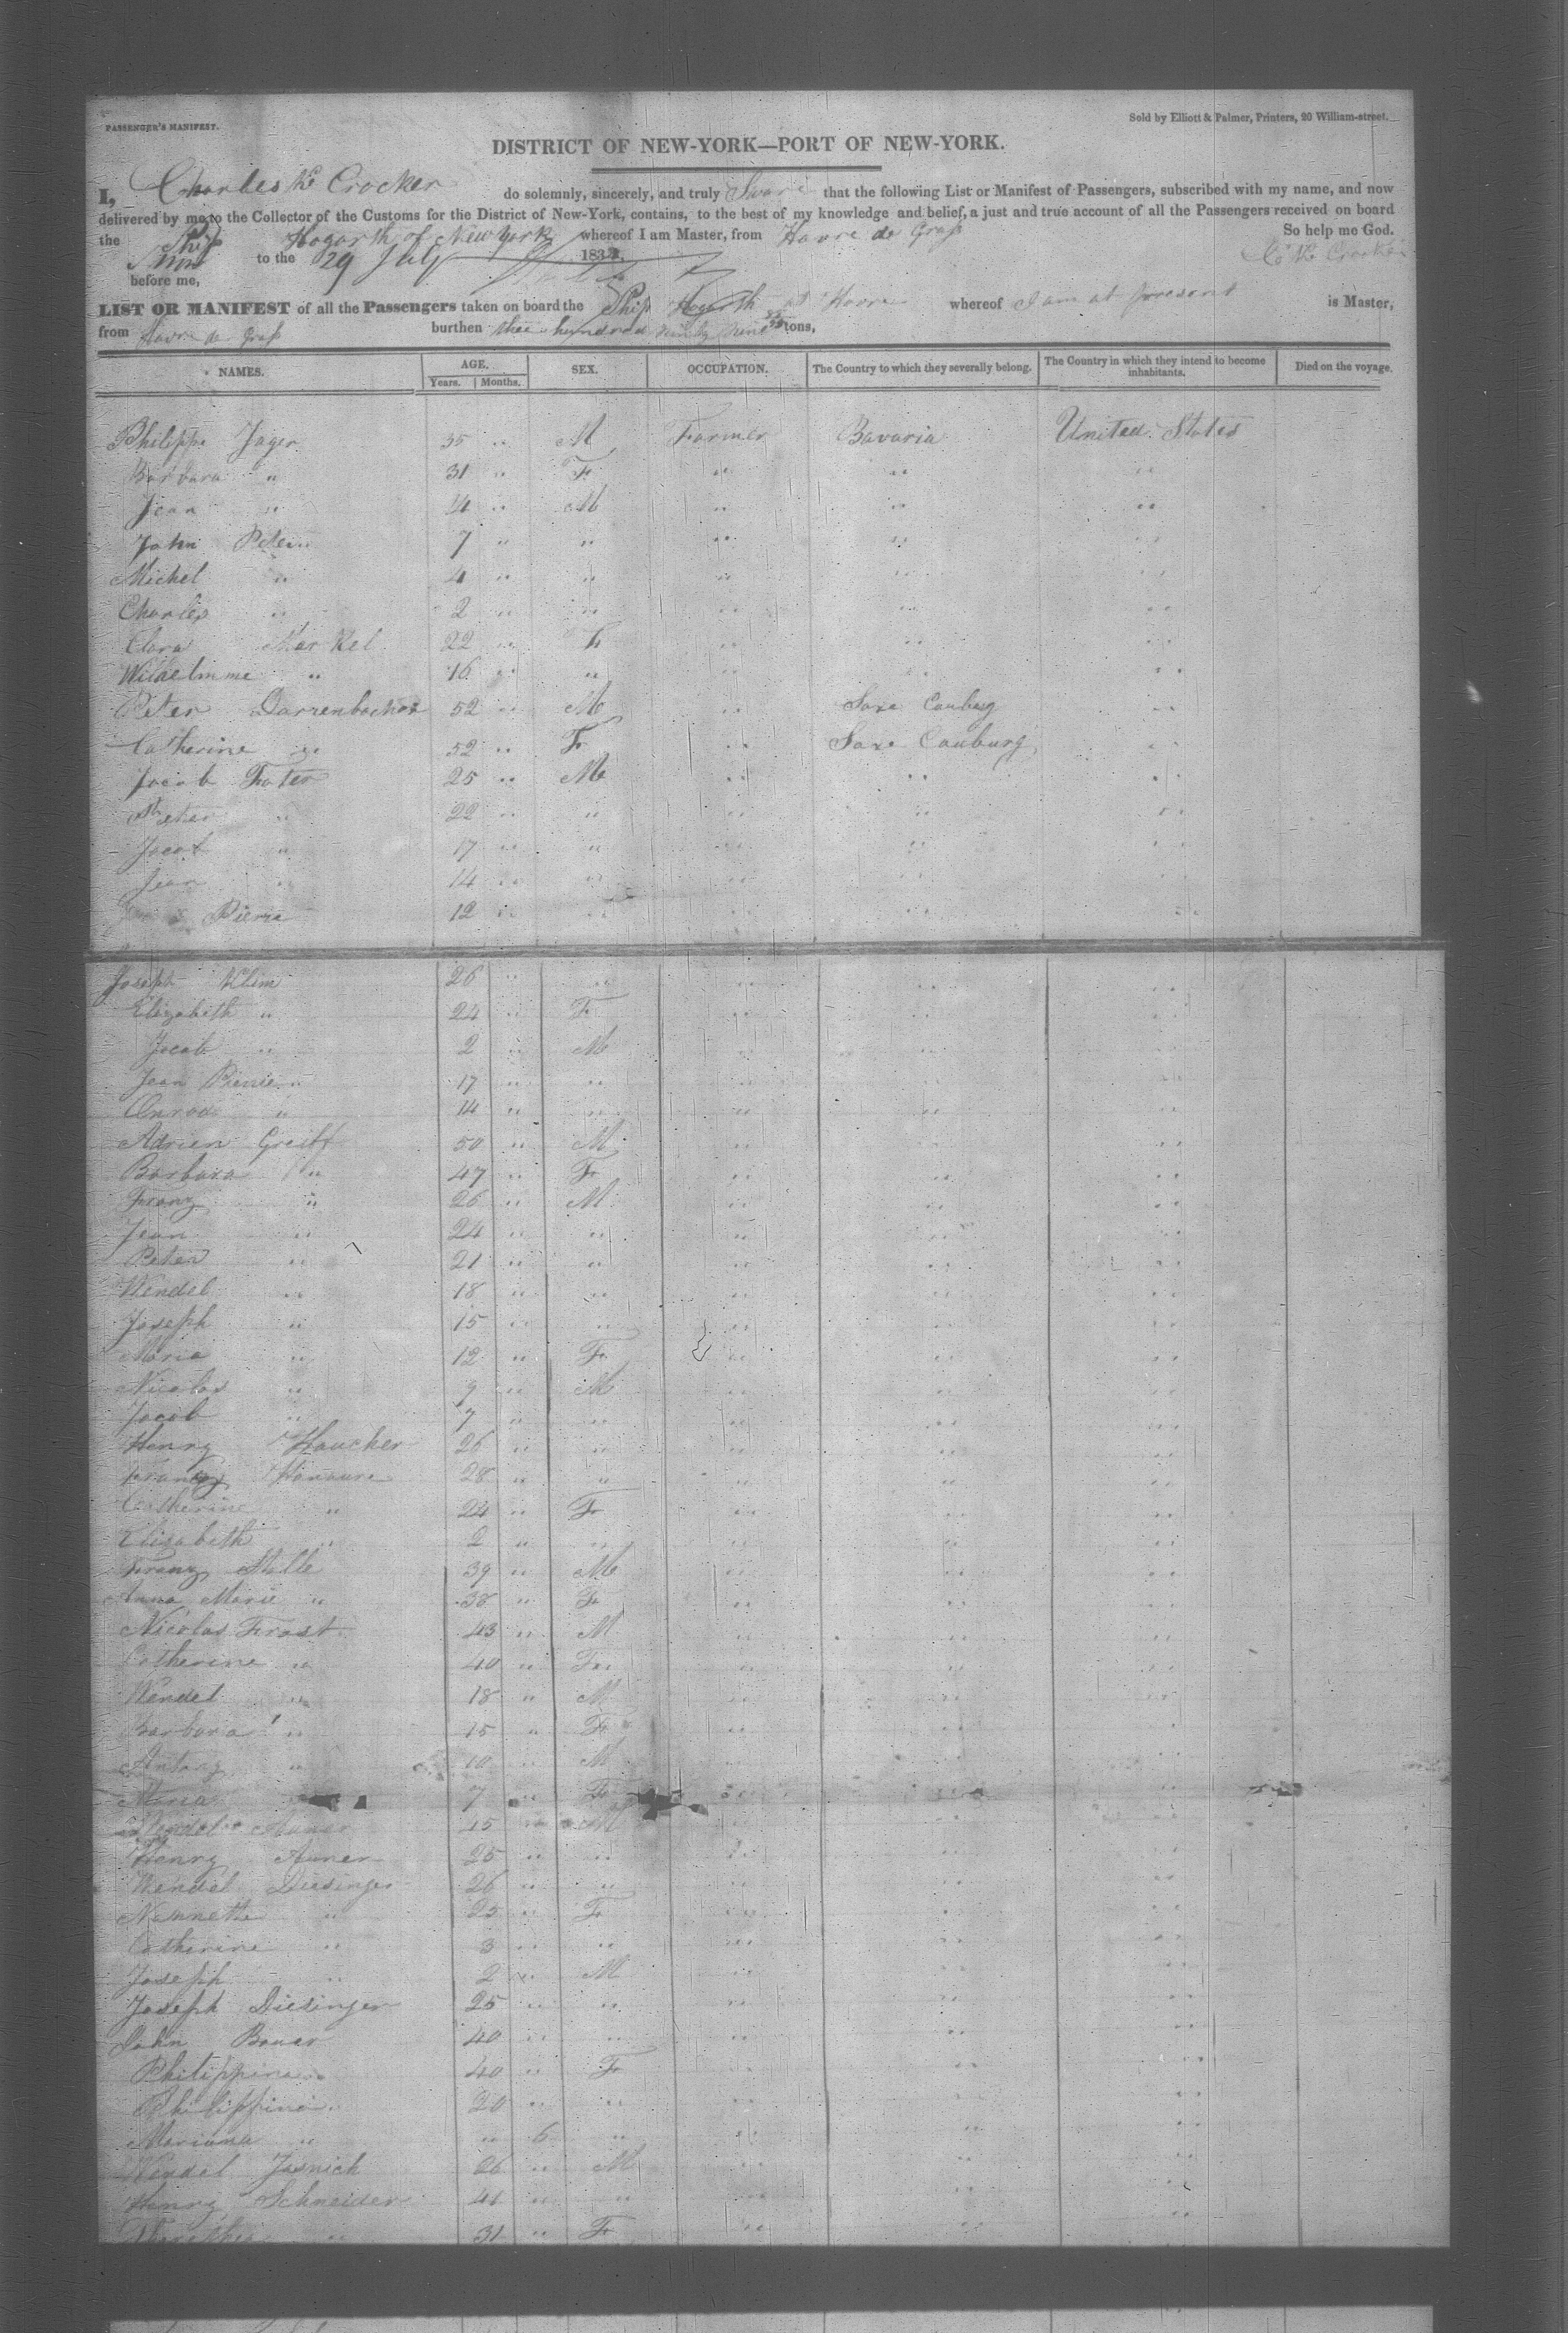 PASSENGER'S MANIFEST.
Sold by Elliott & Palmer, Printers, 20 William-street.
DISTRICT OF NEW-YORK—PORT OF NEW-YORK.
I, Charles Crocker do solemnly, sincerely, and truly Swear that the following List or Manifest of Passengers, subscribed with my name, and now
delivered by me to the Collector of the Customs for the District of New-York, contains, to the best of my knowledge and belief, a just and true account of all the Passengers received on board
the Ship Hogarth of New York whereof I am Master, from Havre de Grass So help me God.
to the 29 July 183
before me,
LIST OR MANIFEST of all the Passengers taken on board the Ship Hogarth at Havre whereof I am at present is Master,
from Havre de Grass burthen three hundred ninety nine tons,
NAMES. AGE. SEX. OCCUPATION. The Country to which they severally belong. The Country in which they intend to become inhabitants. Died on the voyage.
Years. Months.
Philippe Jager 35 " M Farmer Bavaria United States
Barbara " 31 " F " " "
Jean " " M " " "
John Peter " 7 " " " " "
Michel " 4 " " " " "
Charles " 2 " " " " "
Clara Markel 22 " F " " "
Wilhelmine " 16 " " " " "
Peter Darrenbacher 52 " M " Saxe Cauburg "
Catherine " 52 " F " Saxe Cauburg "
Jacob Fater 25 " M " " "
Peter " 22 " " " " "
Jacob " 17 " " " " "
Jean " 14 " " " " "
Pierre 12 " " " " "
Joseph Klein 26 " " " " "
Elizabeth " 24 " F " " "
Jacob " 2 " M " " "
Jean Pierre " 17 " " " " "
Conrad " 14 " " " " "
Adrien Greiff 50 " M " " "
Barbara " 47 " F " " "
Franz " 26 " M " " "
Jean " 24 " " " " "
Peter " 21 " " " " "
Wendel " 18 " " " " "
Joseph " 15 " " " " "
Maria " 12 " F " " "
Nicolas " 9 " M " " "
Jacob " 7 " " " " "
Henry Haucker 26 " " " " "
Franz 28 " " " " "
Catherine " 24 " F " " "
Elizabeth " 2 " " " " "
Franz 39 " M " " "
Anna Marie " 38 " F " " "
Nicolas Frast 43 " M " " "
Catherine " 40 " F " " "
Wendel " 18 " M " " "
Barbara " 15 " F " " "
Antony " 10 " M " " "
Maria 7 " F " " "
Wendel M " " "
Henry Auner 25 " " " " "
Wendel Diesinger 26 " " " " "
Nannette " 25 " F " " "
Catherine " 3 " " " " "
Joseph " 2 " M " " "
Joseph Diesinger 25 " " " " "
John Bauer 40 " " " " "
Philippina " 40 " F " " "
Philippina " 20 " " " " "
Mariana " " 6 " " " "
Wendel Jasnich 26 " M " " "
Henry Schneider 41 " " " " "
" 31 " F " " "